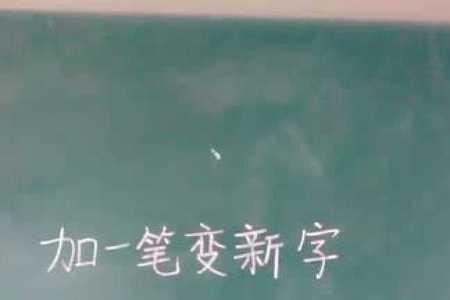 加一笔变新字